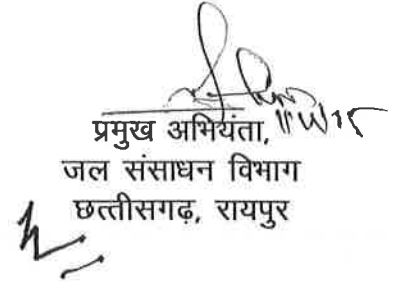 प्रमुख अभियंता,
जल संसाधन विभाग
छत्तीसगढ़, रायपुर